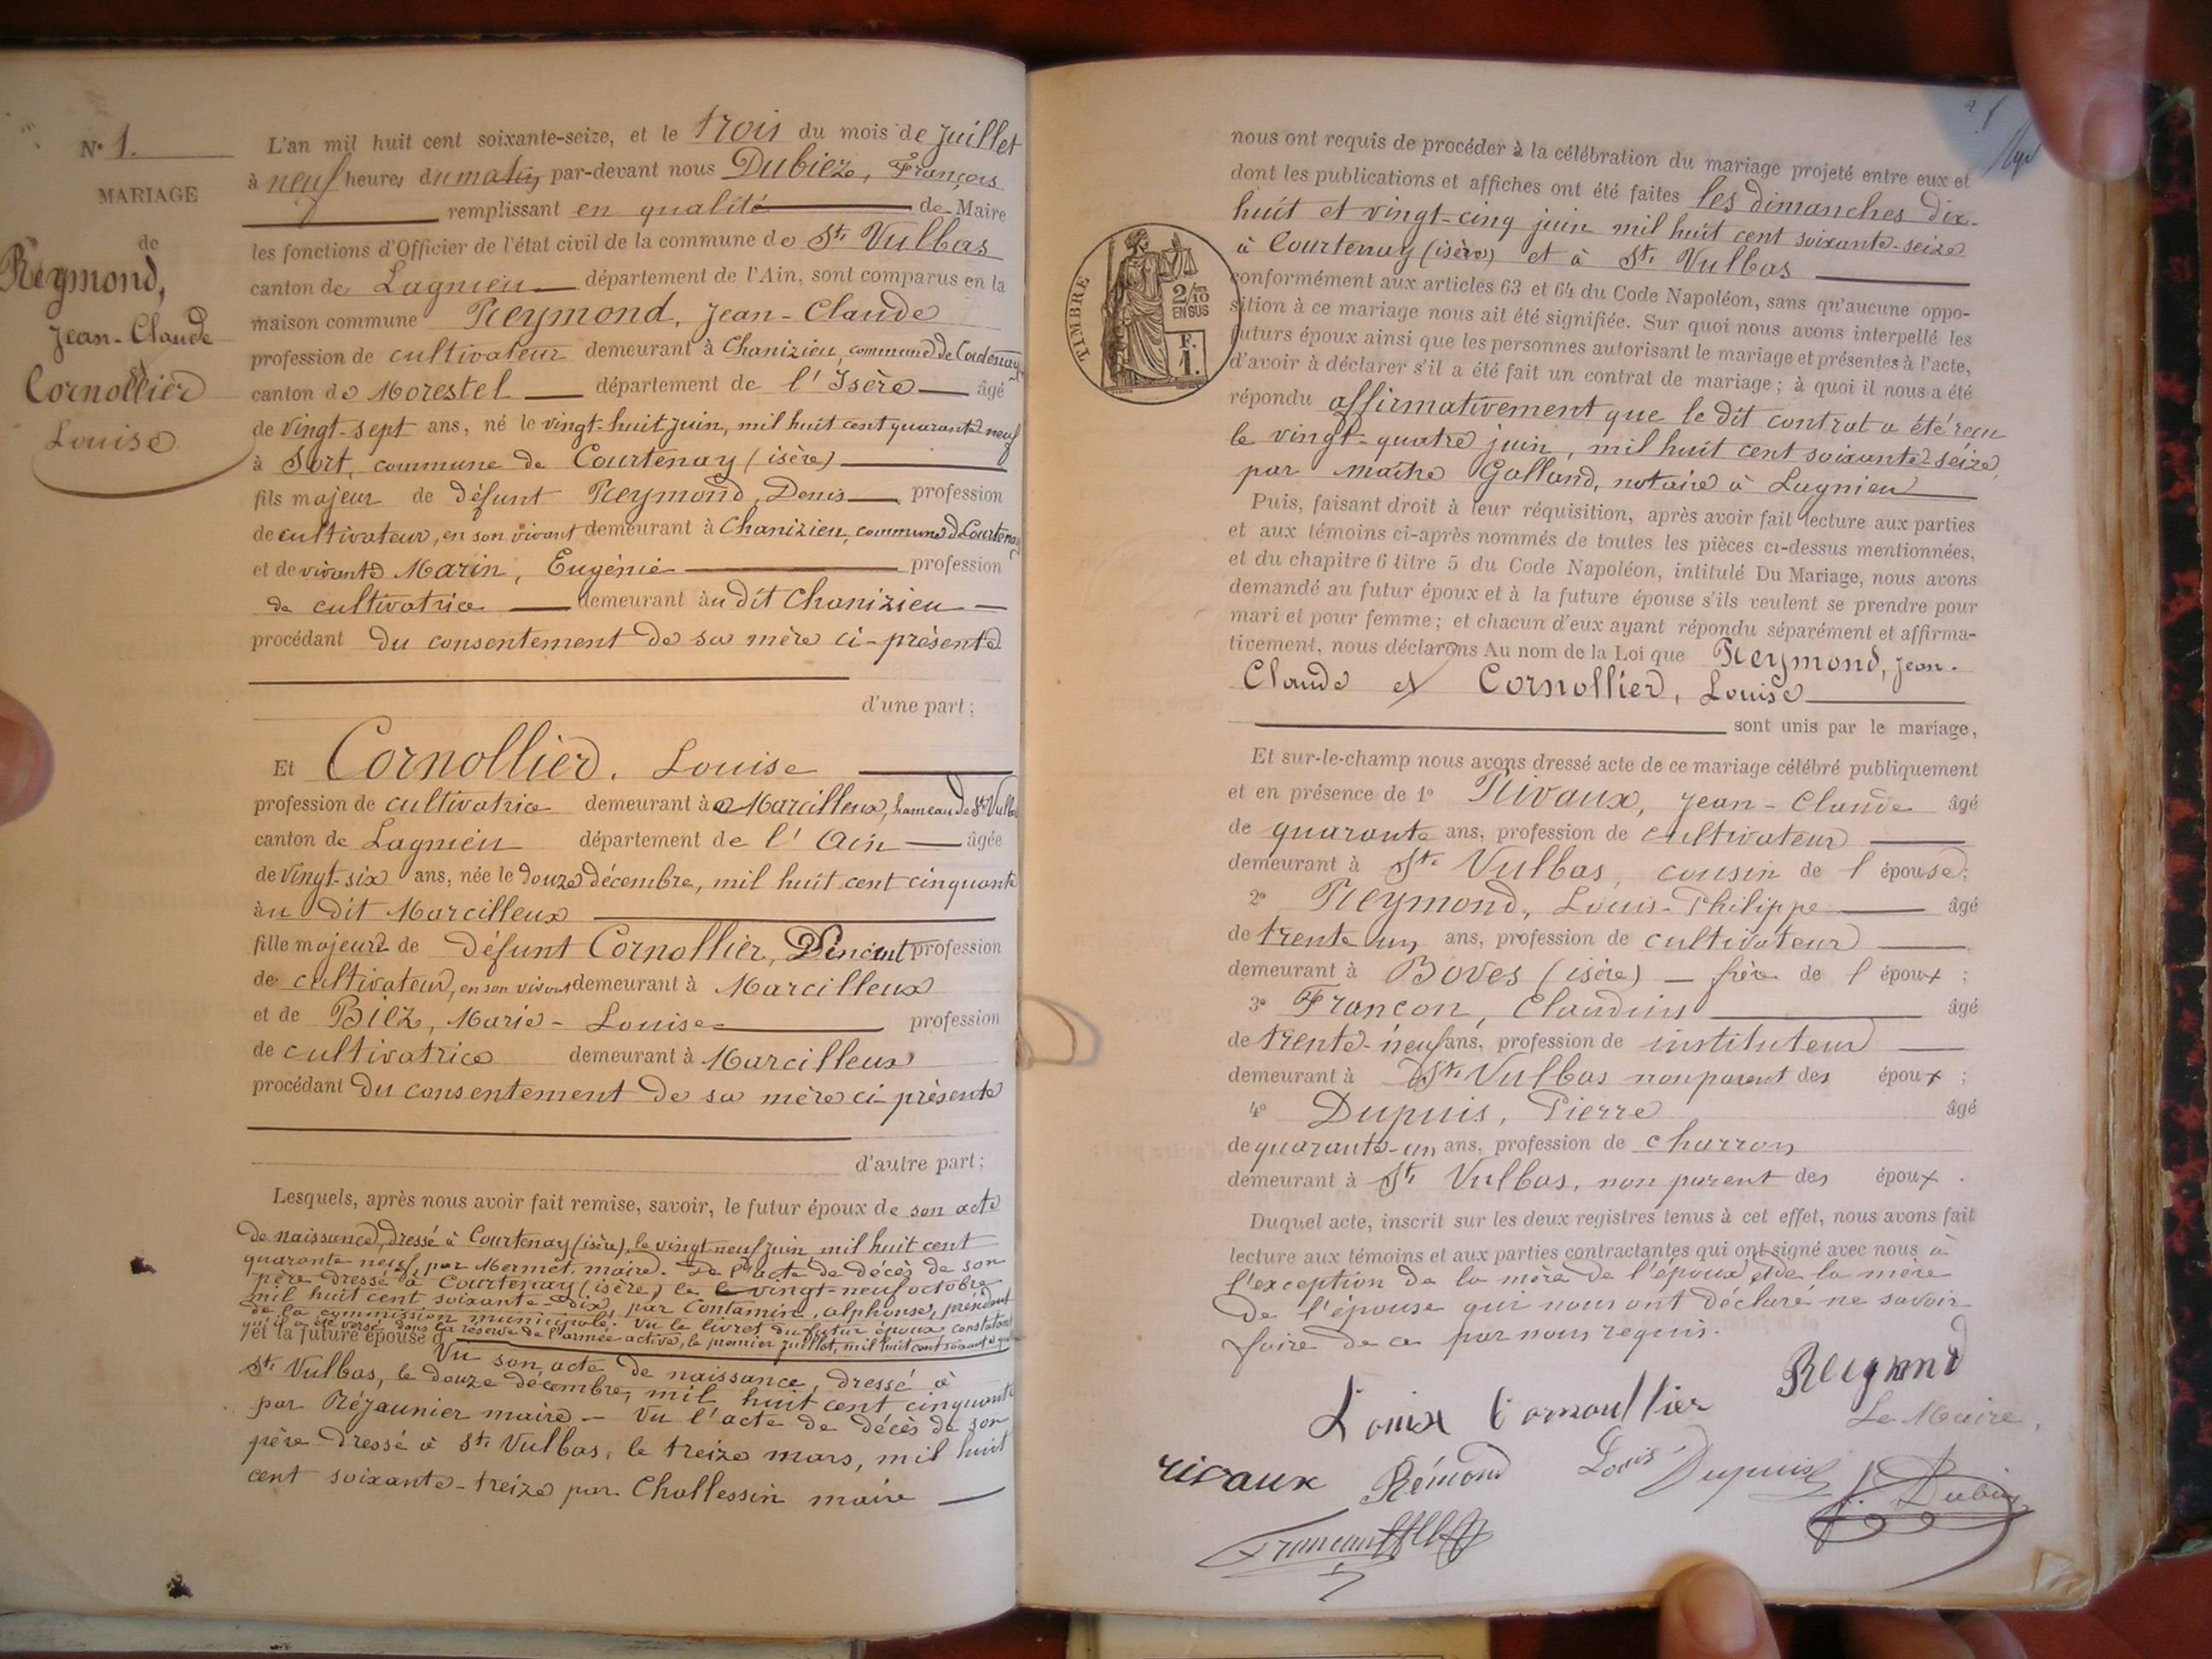 N° 1.
MARIAGE
de
Reymond,
Jean-Claude
et
Cornollier
Louise
L'an mil huit cent soixante-seize, et le trois du mois de juillet
à neuf heures du matin par-devant nous Dubiez, François
remplissant en qualité de Maire
les fonctions d'Officier de l'état civil de la commune de St. Vulbas
canton de Lagnieu département de l'Ain, sont comparus en la
maison commune Reymond, Jean-Claude
profession de cultivateur demeurant à Chanizieu, commune de Courtenay
canton de Morestel département de l'Isère âgé
de vingt-sept ans, né le vingt-huit juin, mil huit cent quarante neuf
à Sort, commune de Courtenay (isère)
fils majeur de défunt Reymond, Denis profession
de cultivateur, en son vivant demeurant à Chanizieu, commune d Courtenay
et de vivante Marin, Eugénie profession
de cultivatrice demeurant àu dit Chanizieu
procédant du consentement de sa mère ci-présente
d'une part;
Et Cornollier, Louise
profession de cultivatrice demeurant à Marcilleux, hameau de St. Vulbas
canton de Lagnieu département de l'Ain âgée
de vingt-six ans, née le douze décembre, mil huit cent cinquante
àu dit Marcilleux
fille majeure de défunt Cornollier, Vincent profession
de cultivateur, en son vivant demeurant à Marcilleux
et de Bilz, Marie-Louise profession
de cultivatrice demeurant à Marcilleux
procédant du consentement de sa mère ci-présente
d'autre part;
Lesquels, après nous avoir fait remise, savoir, le futur époux de son acte
de naissance, dressé à Courtenay (isère), le vingt-neuf juin mil huit cent
quarante neuf, par Mermet, maire. De l'acte de décès de son
père dressé à Courtenay (isère) le vingt-neuf octobre
mil huit cent soixante-dix, par Contamin, Alphonse, président
de la commission municipale. Vu le livret du futur époux, constatant
qu'il a été versé dans la réserve de l'armée active, le premier juillet, mil huit cent soixante
et la future épouse d
Vu son acte de naissance, dressé à
St. Vulbas, le douze décembre, mil huit cent cinquante
par Réjaunier maire – Vu l'acte de décès de son
père dressé à St. Vulbas, le treize mars, mil huit
cent soixante-treize par Chollessin maire
nous ont requis de procéder à la célébration du mariage projeté entre eux et
dont les publications et affiches ont été faites les dimanches dix-
huit et vingt-cinq juin mil huit cent soixante-seize
à Courtenay (isère) et à St. Vulbas
conformément aux articles 63 et 64 du Code Napoléon, sans qu'aucune oppo-
sition à ce mariage nous ait été signifiée. Sur quoi nous avons interpellé les
futurs époux ainsi que les personnes autorisant le mariage et présentes à l'acte,
d'avoir à déclarer s'il a été fait un contrat de mariage; à quoi il nous a été
répondu affirmativement que le dit contrat a été reçu
le vingt-quatre juin, mil huit cent soixante-seize,
par maître Galland, notaire à Lagnieu
TIMBRE
2/10
EN SUS
F.
1.
Puis, faisant droit à leur réquisition, après avoir fait lecture aux parties
et aux témoins ci-après nommés de toutes les pièces ci-dessus mentionnées,
et du chapitre 6 titre 5 du Code Napoléon, intitulé Du Mariage, nous avons
demandé au futur époux et à la future épouse s'ils veulent se prendre pour
mari et pour femme; et chacun d'eux ayant répondu séparément et affirma-
tivement, nous déclarons Au nom de la Loi que Reymond, Jean-
Claude et Cornollier, Louise
sont unis par le mariage,
Et sur-le-champ nous avons dressé acte de ce mariage célébré publiquement
et en présence de 1° Rivaux, Jean-Claude âgé
de quarante ans, profession de cultivateur
demeurant à St. Vulbas, cousin de l'épouse;
2° Reymond, Louis-Philippe âgé
de trente un ans, profession de cultivateur
demeurant à Boves (isère) – frère de l'époux;
3° Françon, Claudius âgé
de trente-neuf ans, profession de instituteur
demeurant à St. Vulbas non parent des époux;
4° Dupuis, Pierre âgé
de quarante-un ans, profession de charron
demeurant à St. Vulbas, non parent des époux.
Duquel acte, inscrit sur les deux registres tenus à cet effet, nous avons fait
lecture aux témoins et aux parties contractantes qui ont signé avec nous à
l'exception de la mère de l'époux et de la mère
de l'épouse qui nous ont déclaré ne savoir
faire de ce par nous requis.
Reymond
Louise Cornoullier
Le Maire,
rivaux Rémond Louis Dupuis
F. Dubiez
Françon